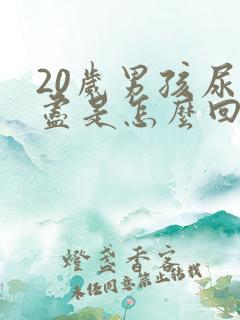 20歲男孩尿
盡是怎麼回
燈盞香客
未经同意禁止转载